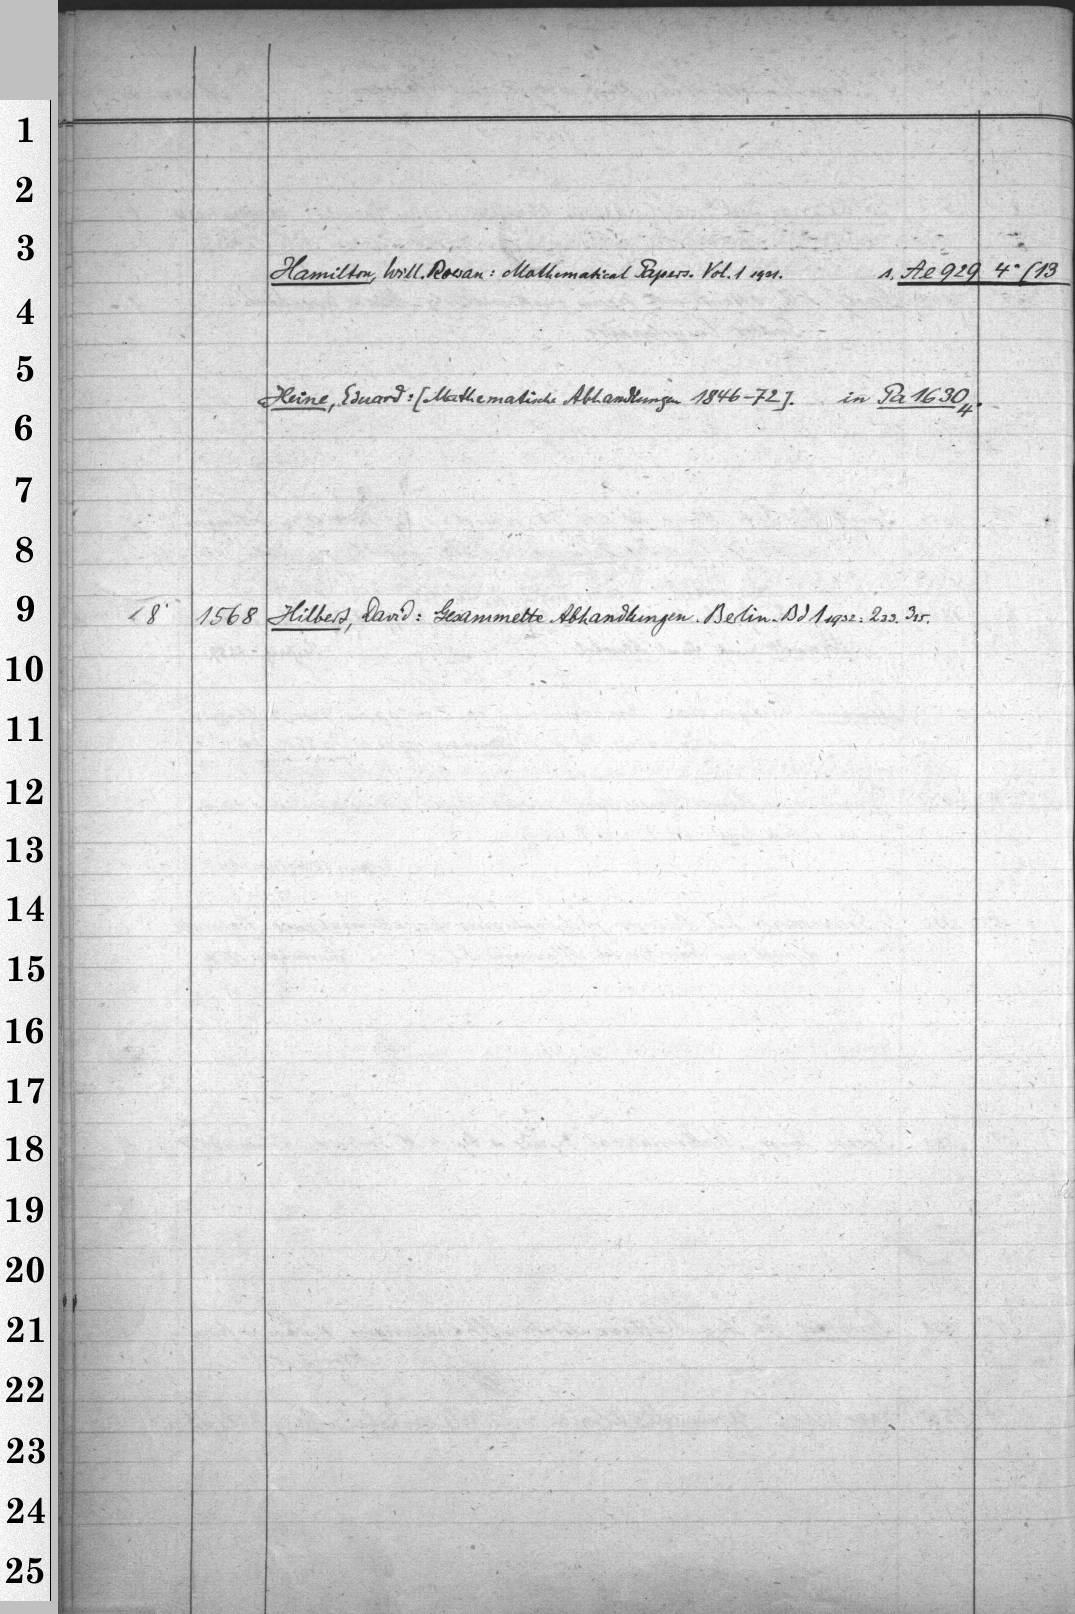 1
2
3
Hamilton, Will. Rowan: Mathematical Papers. Vol. 1 1931. s. Ae 929 4° (13
4
5
Heine, Eduard: [Mathematische Abhandlungen 1846-72]. in Pa 1630, 4.
6
7
8
9
8° 1568 Hilbert, David: Gesammelte Abhandlungen. Berlin. Bd 1 1932. 2 33. 3 35.
10
11
12
13
14
15
16
17
18
19
20
21
22
23
24
25